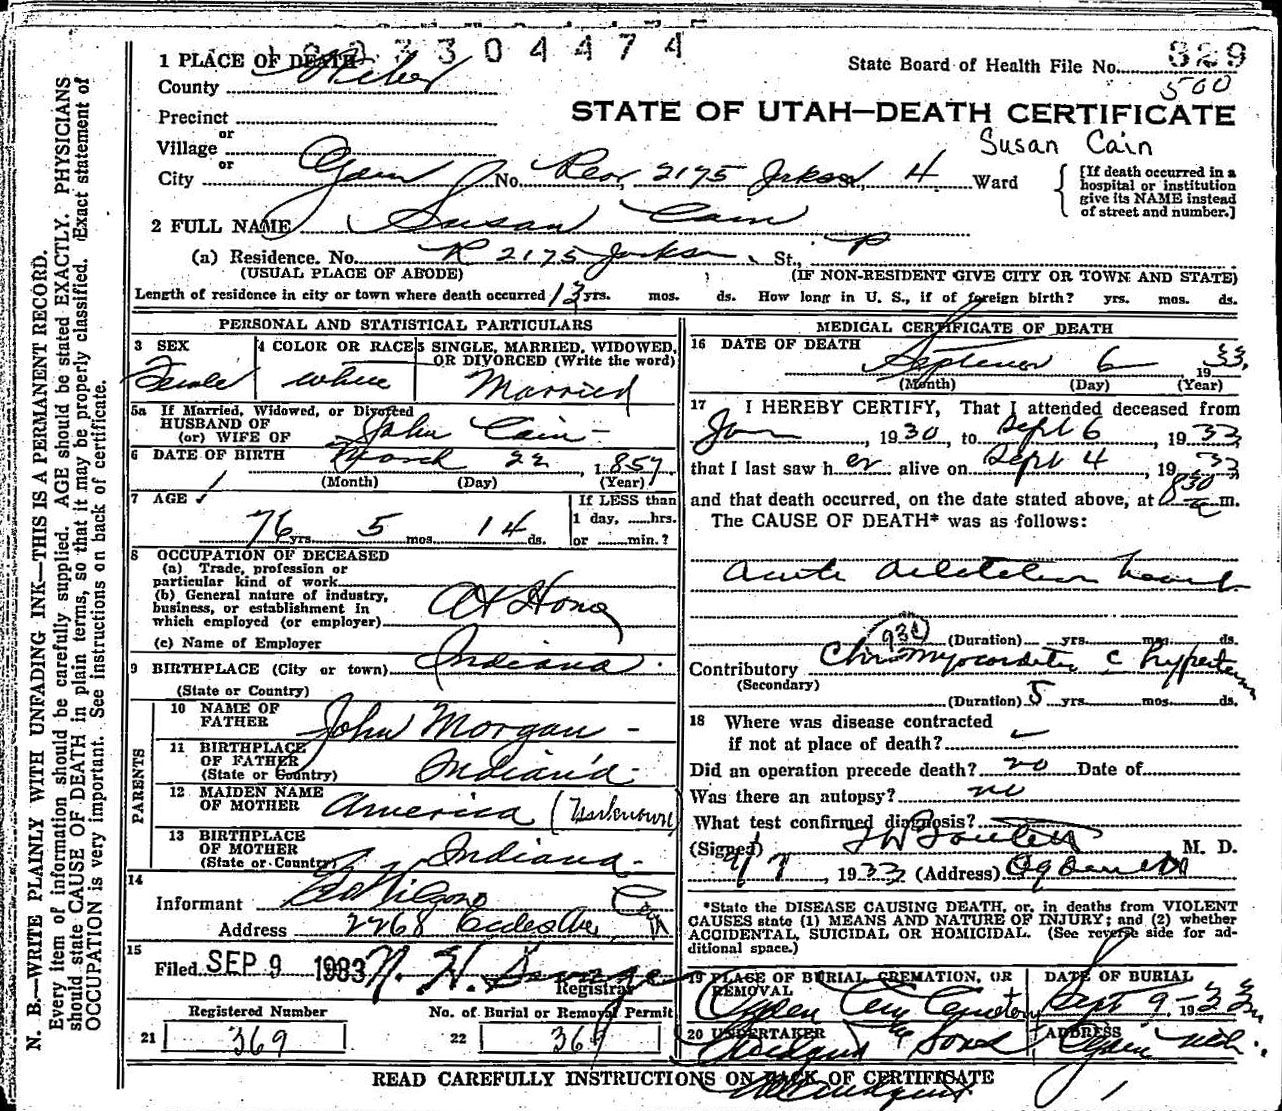 3304474
1 PLACE OF DEATH
State Board of Health File No. 829
County Weber
500
Precinct
STATE OF UTAH—DEATH CERTIFICATE
or
Village
Susan Cain
or
City Ogden No. Rear, 2175 Jackson, 4 Ward
[If death occurred in a hospital or institution give its NAME instead of street and number.]
2 FULL NAME Susan Cain
(a) Residence. No. R 2175 Jackson St.,
(USUAL PLACE OF ABODE) (IF NON-RESIDENT GIVE CITY OR TOWN AND STATE)
Length of residence in city or town where death occurred 13 yrs. mos. ds. How long in U. S., if of foreign birth? yrs. mos. ds.
PERSONAL AND STATISTICAL PARTICULARS
3 SEX
Female
4 COLOR OR RACE
white
5 SINGLE, MARRIED, WIDOWED, OR DIVORCED (Write the word)
Married
5a If Married, Widowed, or Divorced
HUSBAND OF
(or) WIFE OF John Cain
6 DATE OF BIRTH March 22, 1857
(Month) (Day) (Year)
7 AGE
76 yrs. 5 mos. 14 ds.
If LESS than
1 day, ......hrs.
or ........min.?
8 OCCUPATION OF DECEASED
(a) Trade, profession or
particular kind of work
(b) General nature of industry,
business, or establishment in
which employed (or employer) At Home
(c) Name of Employer
9 BIRTHPLACE (City or town) Indiana
(State or Country)
PARENTS
10 NAME OF FATHER John Morgan
11 BIRTHPLACE OF FATHER Indiana
(State or Country)
12 MAIDEN NAME OF MOTHER America (Unknown)
13 BIRTHPLACE OF MOTHER Indiana
(State or Country)
14
Informant Ed Wilson
Address 2268 Eccles Ave
15
Filed SEP 9 1933
Registrar
Registered Number
No. of Burial or Removal Permit
21 369
22 369
MEDICAL CERTIFICATE OF DEATH
16 DATE OF DEATH
September 6 1933
(Month) (Day) (Year)
17 I HEREBY CERTIFY, That I attended deceased from
Jan, 1930, to Sept 6, 1933
that I last saw her alive on Sept 4, 1933
and that death occurred, on the date stated above, at 830 a m.
The CAUSE OF DEATH* was as follows:
Acute dilatation heart
(Duration) yrs. mos. ds.
Contributory Chr Myocarditis c hypertension
(Secondary)
(Duration) 5 yrs. mos. ds.
18 Where was disease contracted
if not at place of death?
Did an operation precede death? no Date of
Was there an autopsy? no
What test confirmed diagnosis?
(Signed) M. D.
9/7, 1933 (Address) Ogden Utah
*State the DISEASE CAUSING DEATH, or, in deaths from VIOLENT
CAUSES state (1) MEANS AND NATURE OF INJURY; and (2) whether
ACCIDENTAL, SUICIDAL OR HOMICIDAL. (See reverse side for ad-
ditional space.)
19 PLACE OF BURIAL, CREMATION, OR REMOVAL
Ogden City Cemetery
DATE OF BURIAL
Sept 9 - 1933
20 UNDERTAKER
& Sons
ADDRESS
Ogden Utah.
READ CAREFULLY INSTRUCTIONS ON BACK OF CERTIFICATE
N. B.—WRITE PLAINLY WITH UNFADING INK—THIS IS A PERMANENT RECORD.
Every item of information should be carefully supplied. AGE should be stated EXACTLY. PHYSICIANS
should state CAUSE OF DEATH in plain terms, so that it may be properly classified. Exact statement of
OCCUPATION is very important. See instructions on back of certificate.